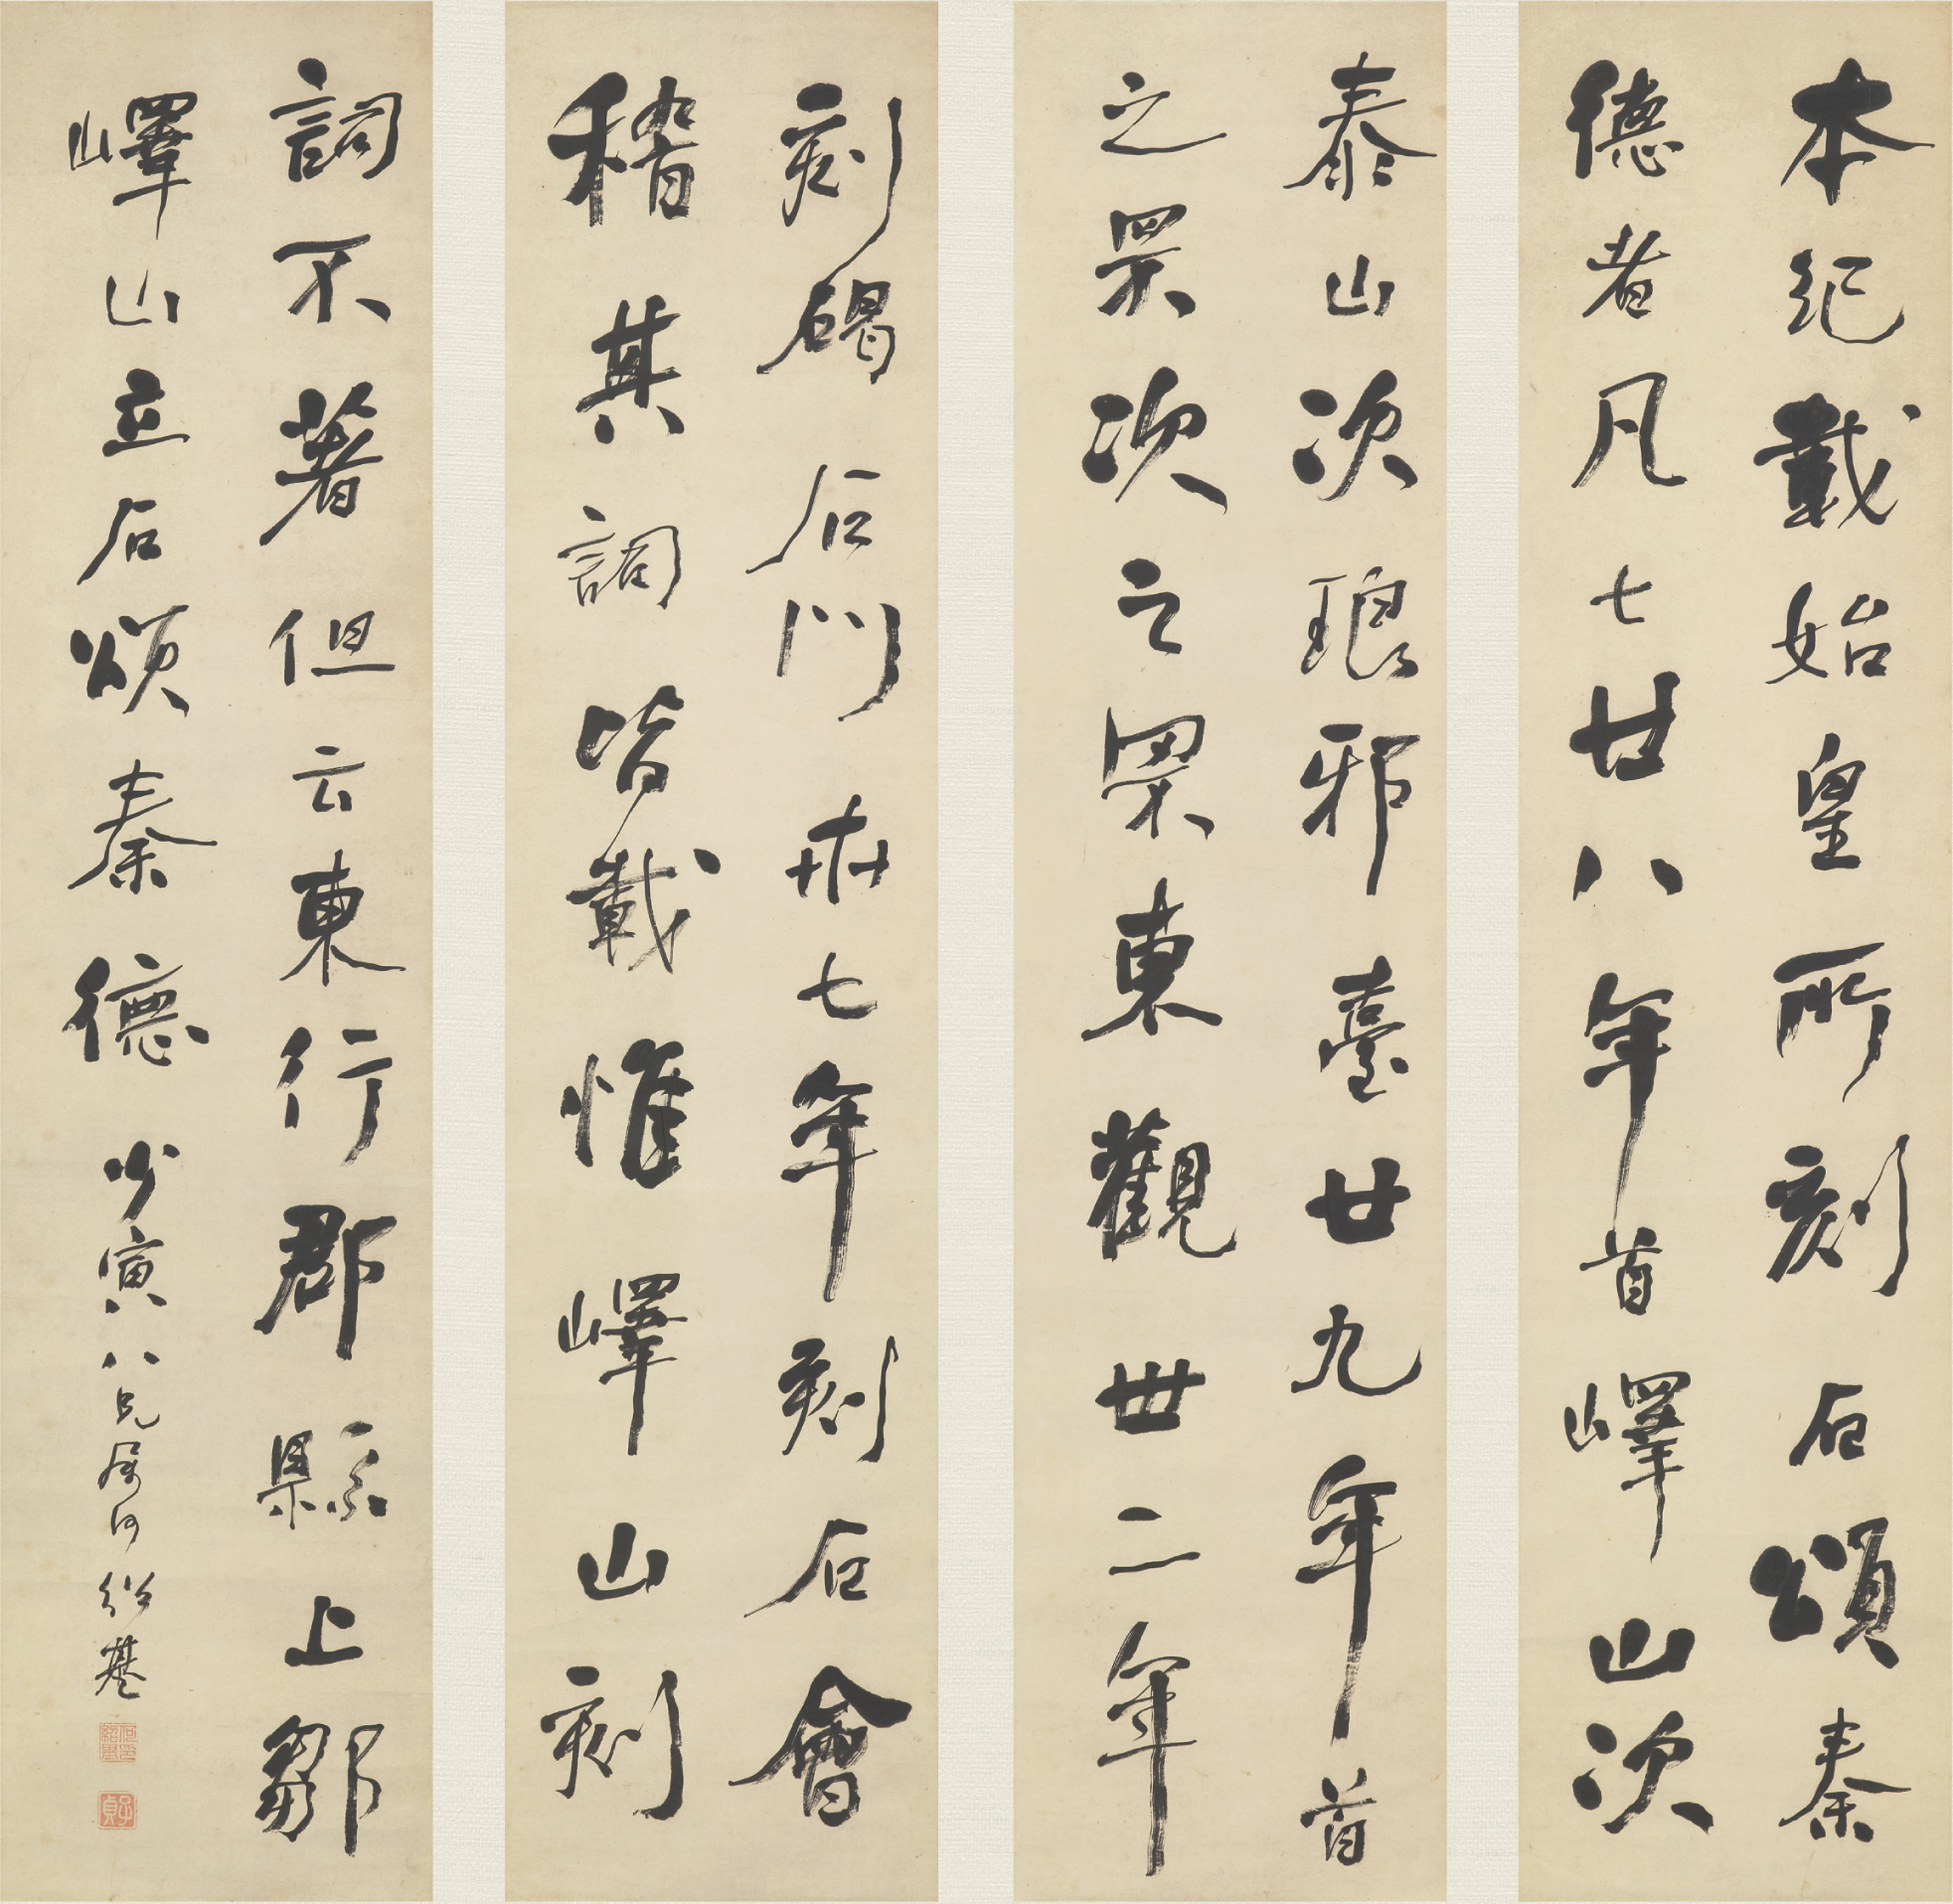 本紀載始皇所刻石頌秦
德者凡七廿八年首嶧山次
泰山次琅邪臺廿九年首
之罘次之罘東觀丗二年
刻碣石門卅七年刻石會
稽其詞皆載惟嶧山刻
詞不著但云東行郡縣上鄒
嶧山立石頌秦德 少寅八兄属 何紹基
何紹基印
子貞